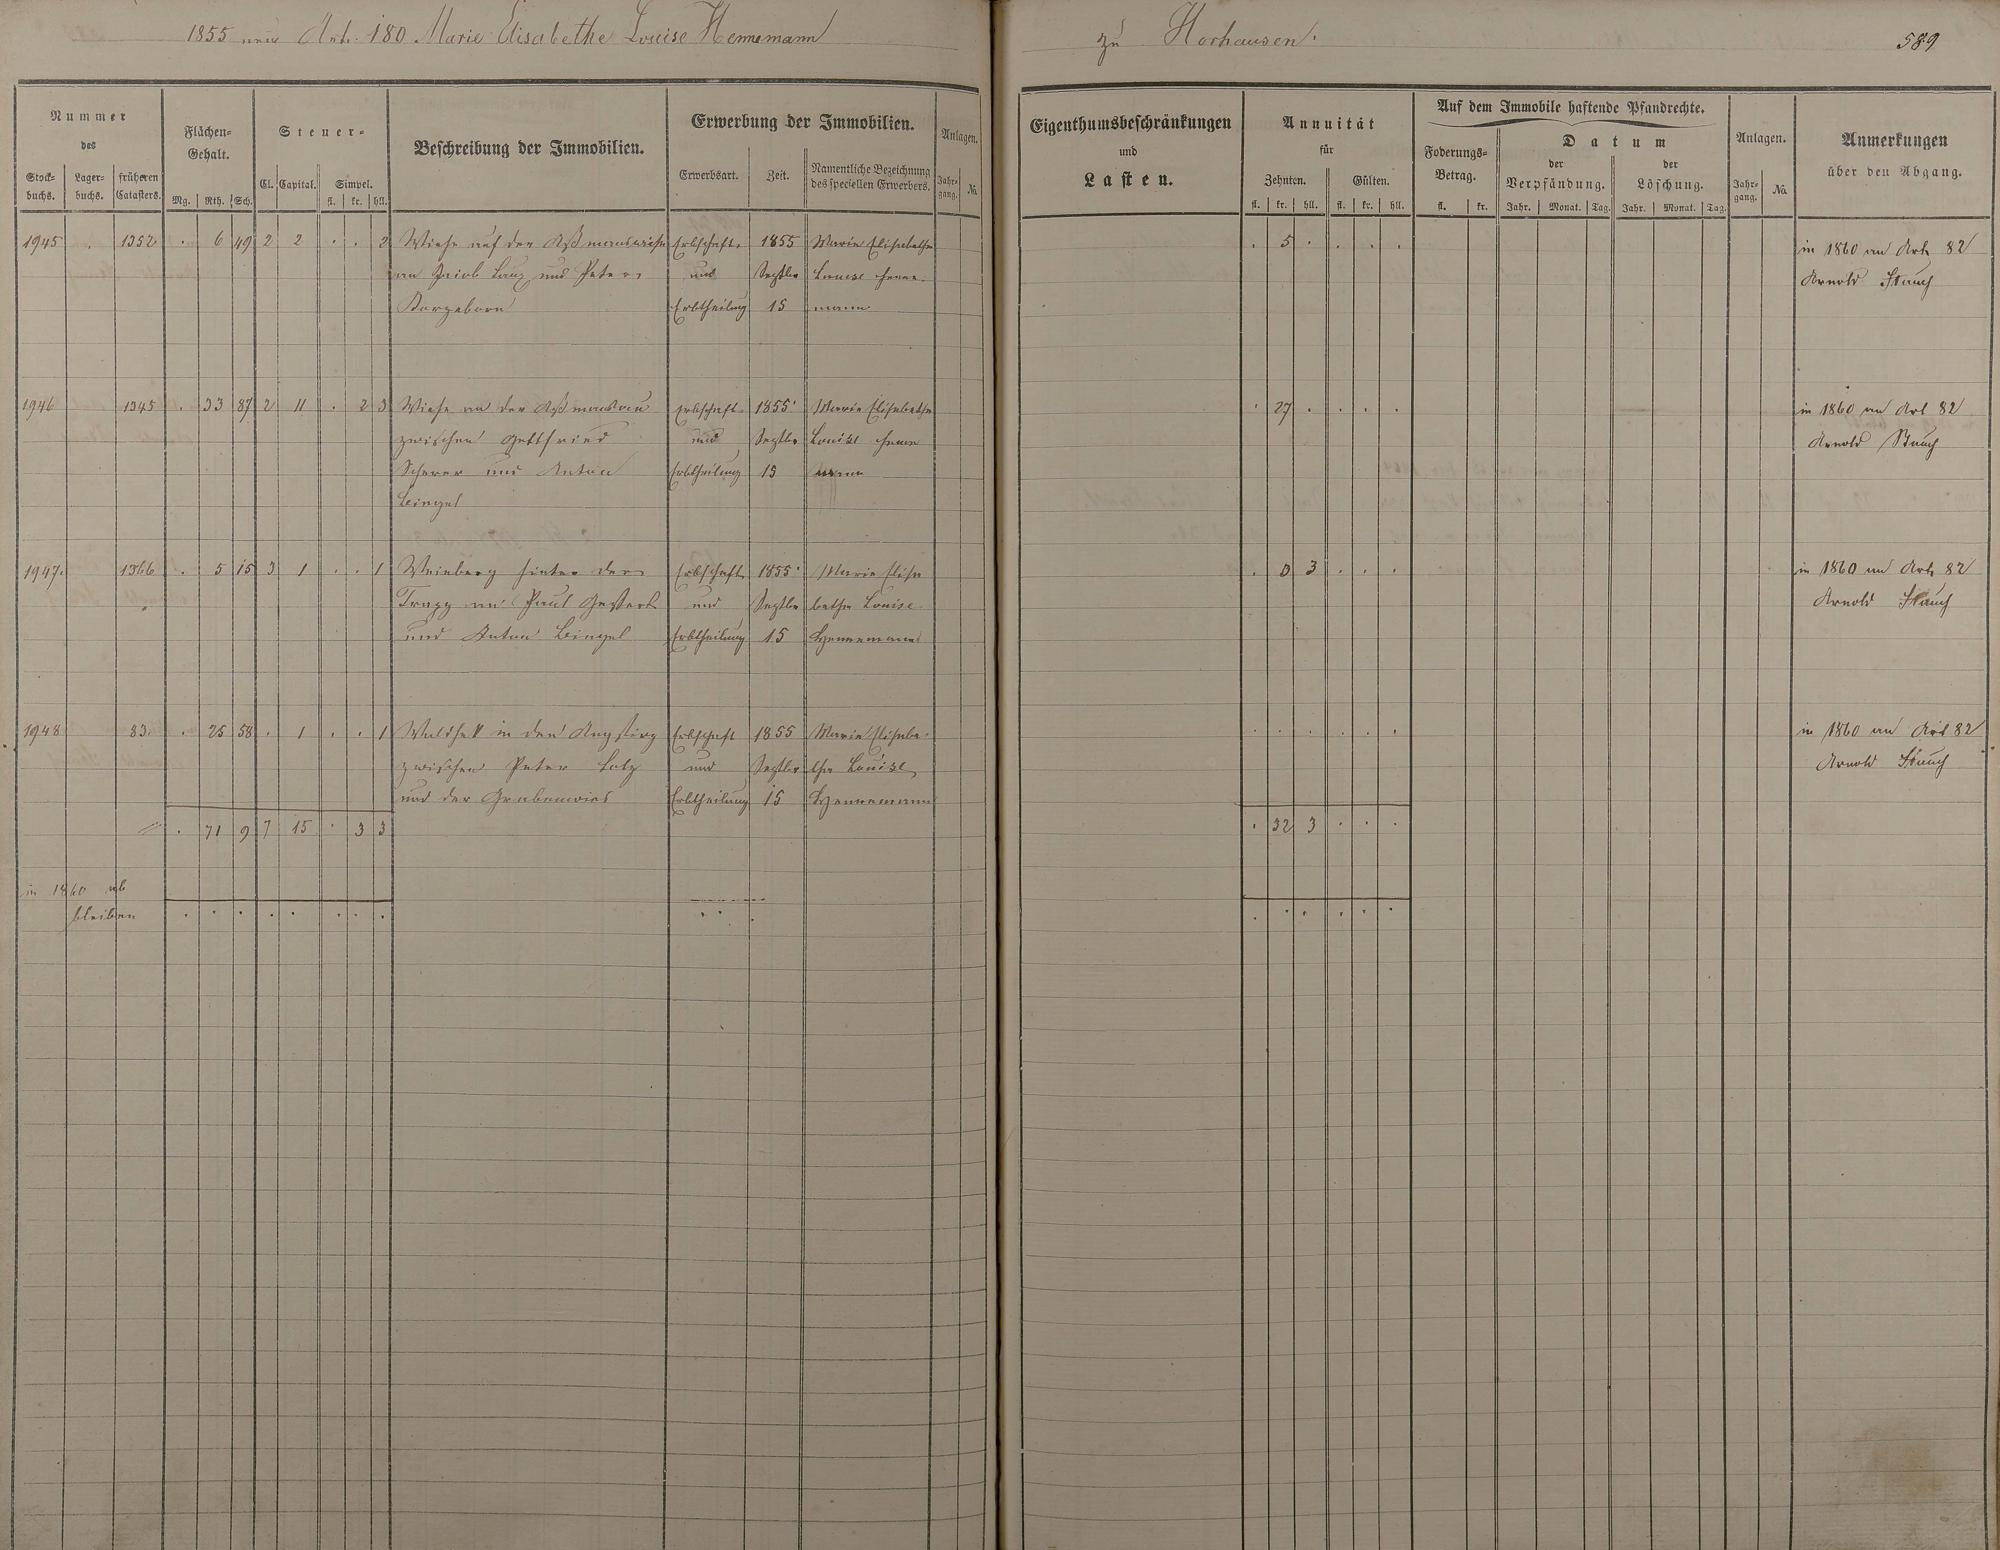 1855 neu Art. 180 Marie Elisabethe Louise Hennemann
zu Horhausen.
589
Nummer
des
Stock-
buchs.
Lager-
buchs.
früheren
Catasters.
Flächen-
Gehalt.
Mg. Rth. Sch.
Steuer-
Cl. Capital. Simpel.
fl. kr. hll.
Beschreibung der Immobilien.
Erwerbung der Immobilien.
Erwerbsart. Zeit.
Namentliche Bezeichnung
des speciellen Erwerbers.
Anlagen.
Jahr-
gang. No.
Eigenthumsbeschränkungen
und
Lasten.
Annuität
für
Zehnten. Gülten.
fl. kr. hll. fl. kr. hll.
Auf dem Immobile haftende Pfandrechte.
Foderungs-
Betrag.
fl. kr.
Datum
der
Verpfändung.
der
Löschung.
Jahr. Monat. Tag. Jahr. Monat. Tag.
Anlagen.
Jahr-
gang. No.
Anmerkungen
über den Abgang.
1945 . 1352 . 6 49 2 2 . . 2 Wiese auf der Erbschaft 1855 Marie Elisabethe . 5 . . . . in 1860 an Art. 82
an Jacob und Peter und Septbr Louise Henne- Arnold Stauch
Erbtheilung 15 mann
1946 1345 . 33 87 2 11 . 2 3 Wiese an der Erbschaft 1855 Marie Elisabethe . 27 . . . . in 1860 an Art 82
zwischen Gottfried und Septbr Louise Henne Arnold Stauch
Scherer und Anton Erbtheilung 15 mann
Bingel
1947. 1366 . 5 15 3 1 . . 1 Weinberg hinter der Erbschaft 1855 Marie Elisa . 0 3 . . . in 1860 an Art. 82
an Paul und Septbr bethe Louise Arnold Stauch
und Anton Bingel Erbtheilung 15 Hennemann
1948 83. . 25 58 . 1 . . 1 in den Erbschaft 1855 Marie Elisabe- . . . . . . in 1860 an Art 82
zwischen Peter und Septbr the Louise Arnold Stauch
und der Grabenwies Erbtheilung 15 Hennemann
. 71 9 7 15 . 3 3 . 32 3 . . .
in 1860 ab
bleiben . . . . . . . . . . . . . .